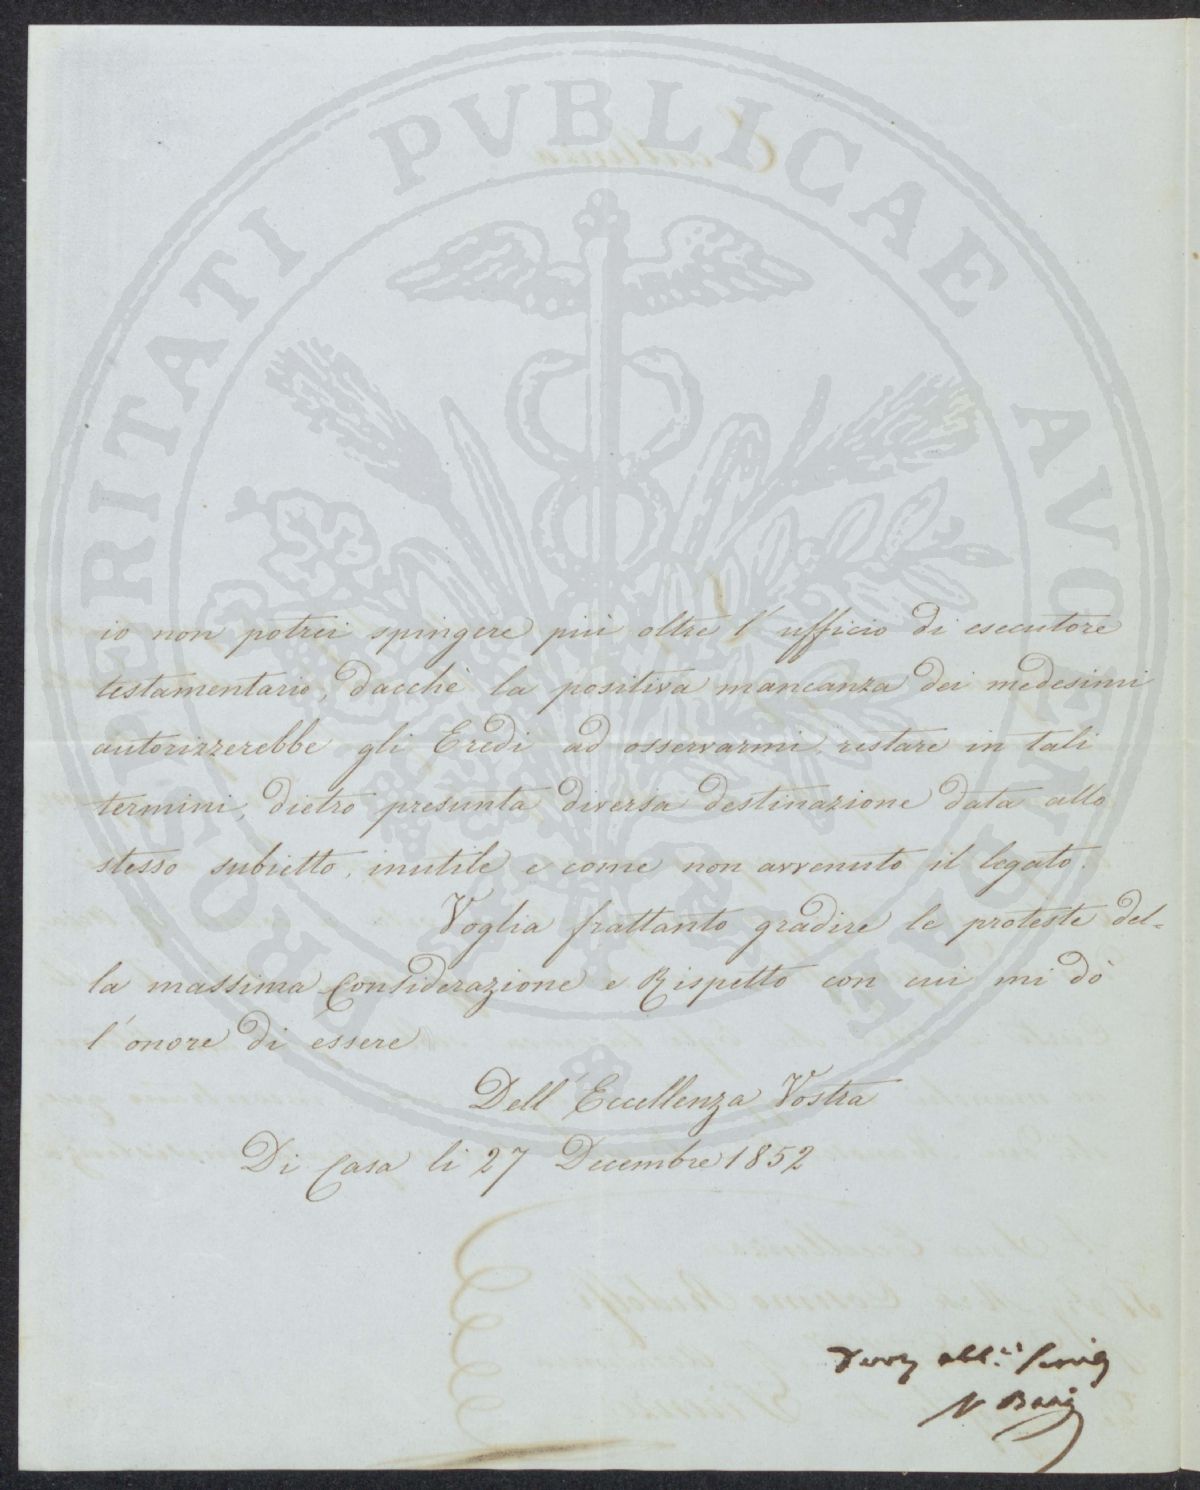 PROSPERITATI PVBLICAE AVGENDAE
io non potrei spingere più oltre l'ufficio di esecutore
testamentario, dacchè la positiva mancanza dei medesimi
autorizzerebbe gli Eredi ad osservarmi restare in tali
termini, dietro presunta diversa destinazione data allo
stesso subietto, inutile e come non avvenuto il legato.
Voglia frattanto gradire le proteste del-
la massima Considerazione e Rispetto con cui mi dò
l'onore di essere
Dell'Eccellenza Vostra
Di Casa li 27 Decembre 1852